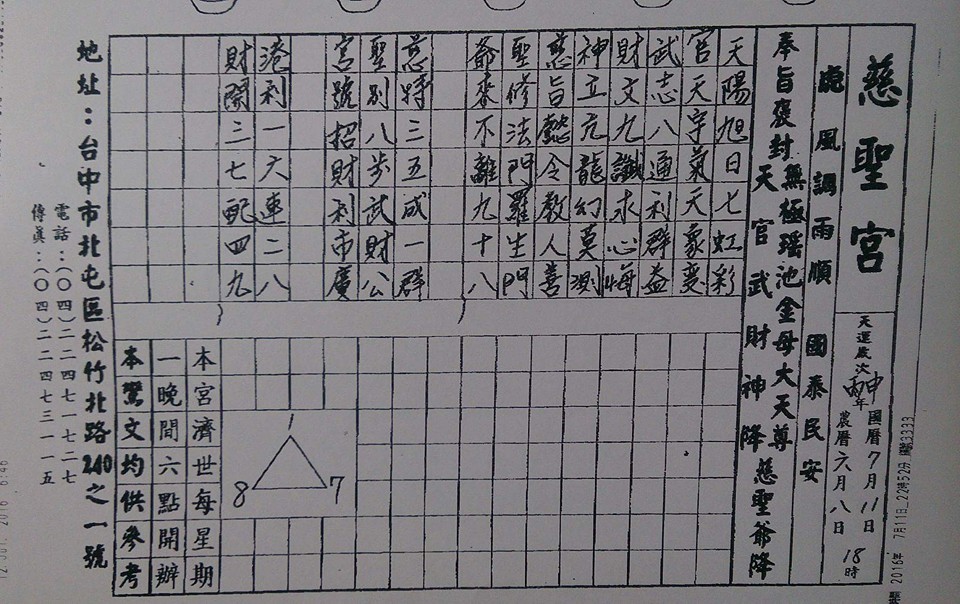 慈聖宮
天運歲次丙申年
國曆7月11日
農曆六月八日
18時
2016年 7月11日 22時52分
風調雨順 國泰民安
奉旨褒封無極瑤池金母大天尊 慈聖爺降
天官武財神降
天陽旭日七虹彩
官天宇氣天象变
武志八通利群益
財文九讖求心悔
神立元龍幻莫測
慈旨懿令教人善
聖修法門羅生門
爺來不離九十八
慈特三五成一群
聖別八步武財公
宮號招財利市廣
港利一六連二八
財開三七配四九
1
8
7
本宮濟世每星期
一晚間六點開辦
本鸞文均供參考
地址：台中市北屯區松竹北路240之一號
電話：(〇四)二二四七一七二七
傳真：(〇四)二二四七三一一五